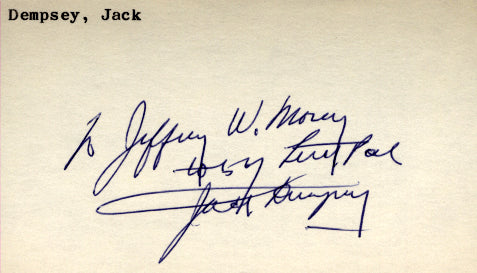 Dempsey, Jack
To Jeffrey W. Morey
Pal
Jack Dempsey